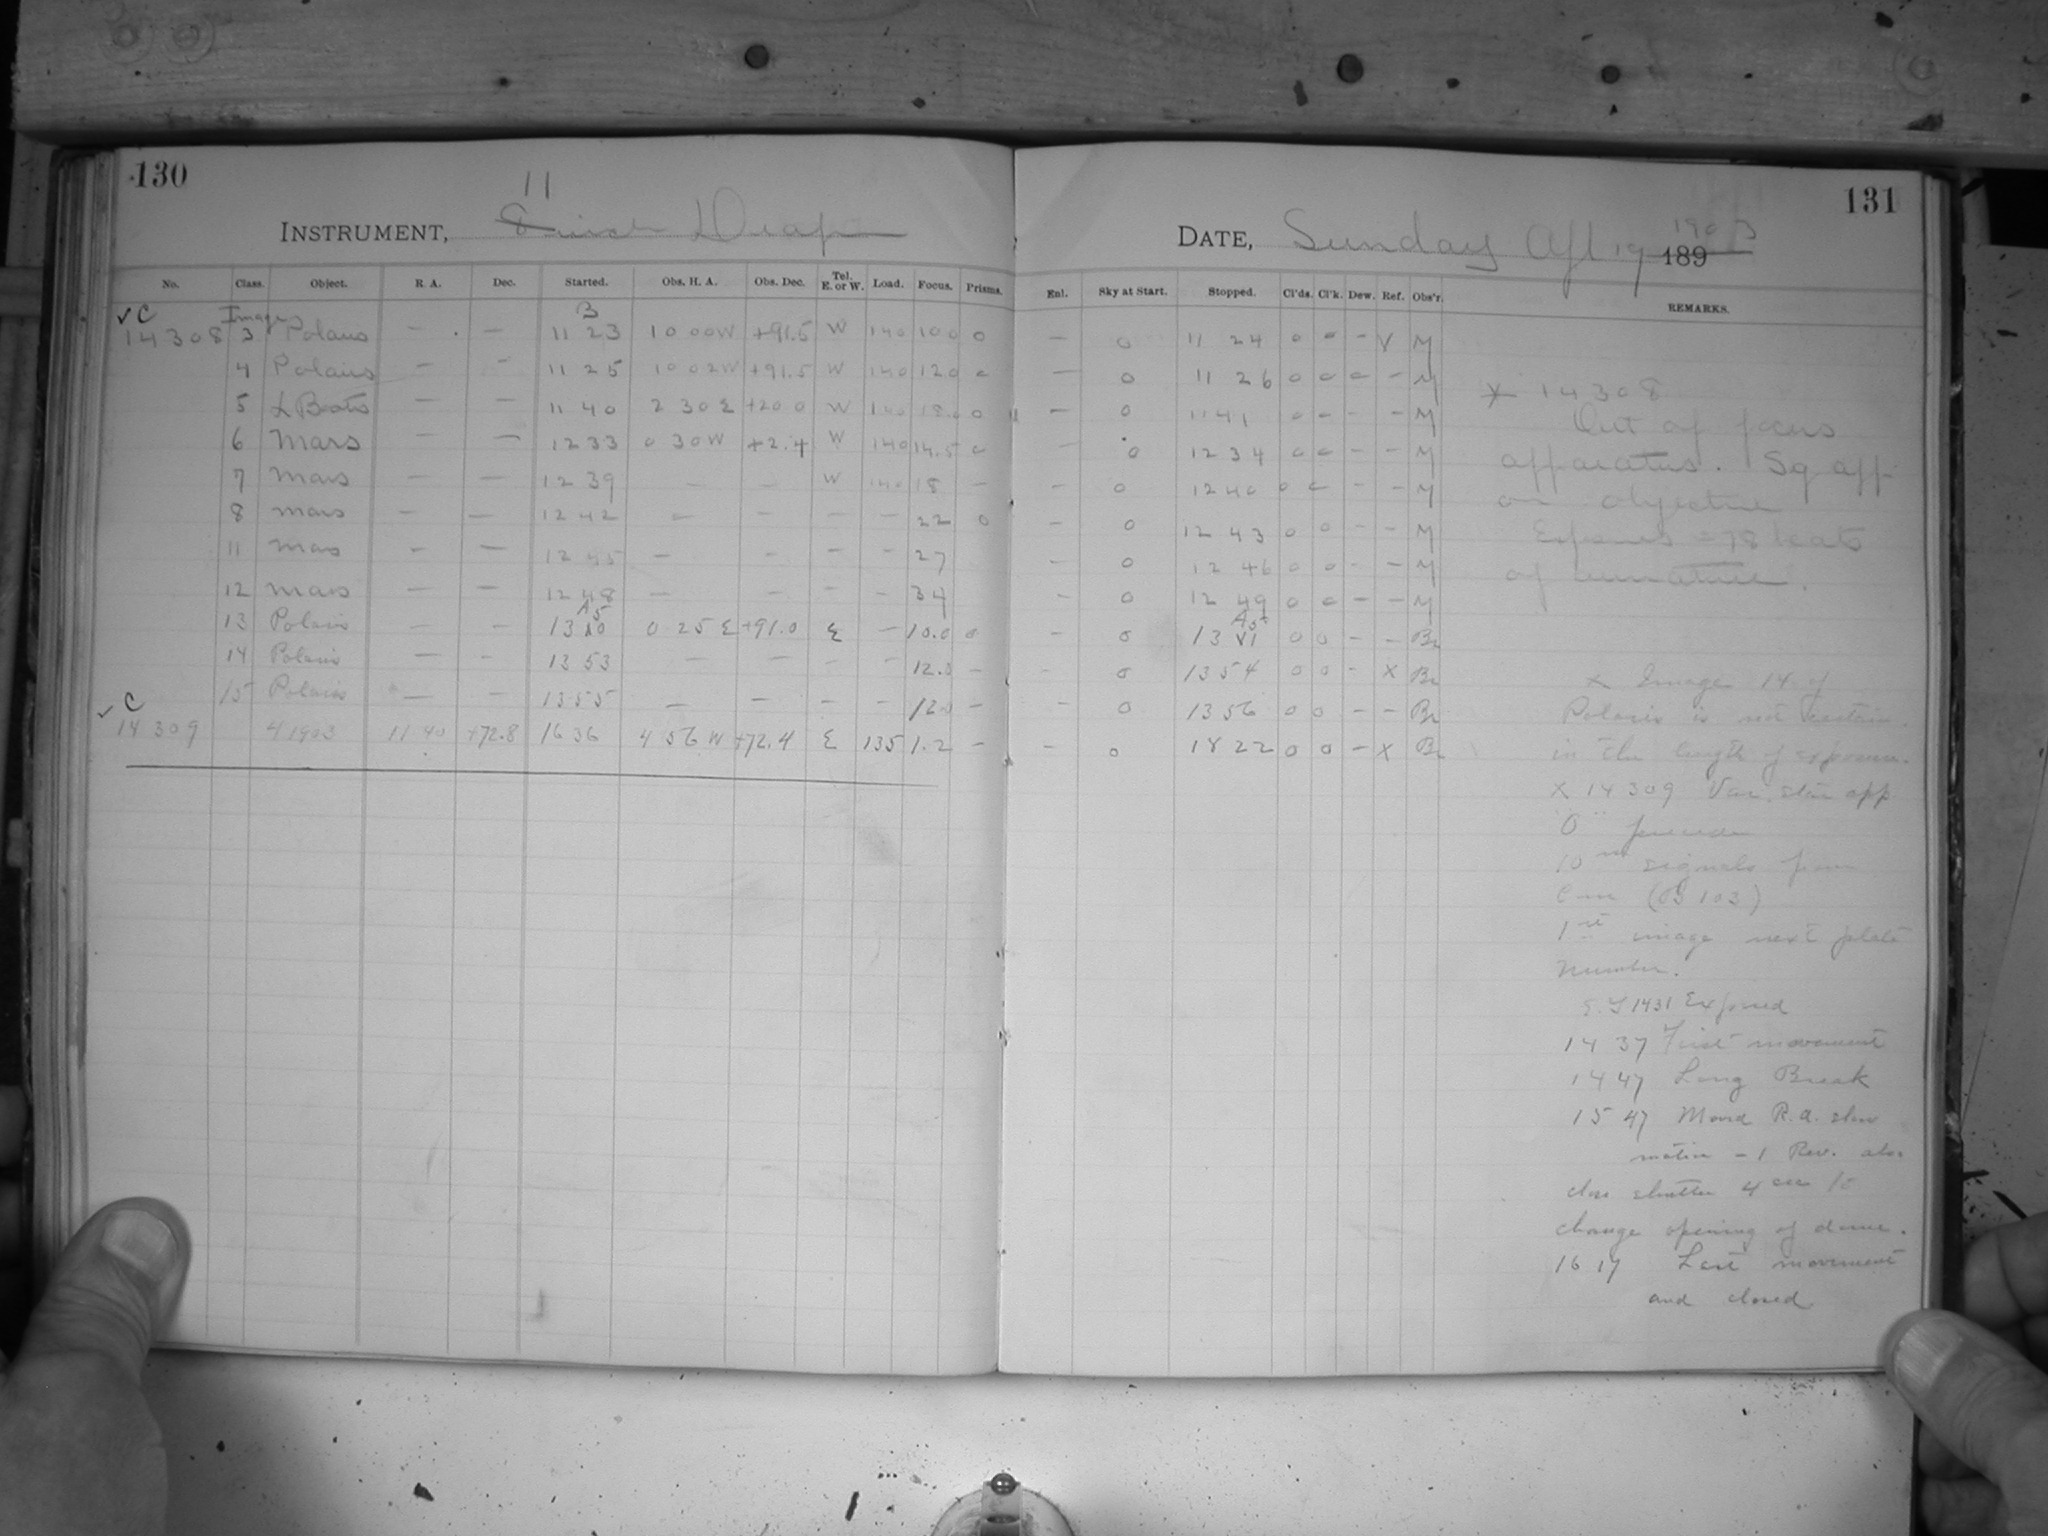 130
11
INSTRUMENT, 8 inch Draper
No. Class. Object. R. A. Dec. Started. Obs. H. A. Obs. Dec. Tel. E. or W. Load. Focus. Prisms.
✓ C Images B
14308 3 Polaris — — 11 23 10 00 W +91.5 W 140 10.0 0
4 Polaris — — 11 25 10 02 W +91.5 W 140 12.0 0
5 Bootis — — 11 40 2 30 E +20 0 W 140 18.0 0
6 Mars — — 12 33 0 30 W +2.4 W 140 14.5 0
7 Mars — — 12 39 — — W 140 18 —
8 Mars — — 12 42 — — — — 22 0
11 Mars — — 12 45 — — — — 27
12 Mars — — 12 48 — — — — 34
13 Polaris — — 13 50 0 25 E +91.0 E — 10.0 0
14 Polaris — — 13 53 — — — — 12.0 —
15 Polaris — — 13 55 — — — — 12.0 —
✓ C
14309 4 1903 11 40 +72.8 16 36 4 56 W +72.4 E 135 1.2 —
131
DATE, Sunday Apl 19 1903
189
Enl. Sky at Start. Stopped. Cl'ds. Cl'k. Dew. Ref. Obs'r. REMARKS.
— 0 11 24 0 0 — V M
— 0 11 26 0 0 0 — M
— 0 11 41 0 — — — M
— 0 12 34 0 0 — — M
— 0 12 40 0 0 — — M
— 0 12 43 0 0 — — M
— 0 12 46 0 0 — — M
— 0 12 49 0 0 — — M
— 0 13 51 0 0 — — Br
— 0 13 54 0 0 — X Br
— 0 13 56 0 0 — — Br
— 0 18 22 0 0 — X Br
X 14308
Out of focus
apparatus. Sq app
on objective
Exposures = 78 beats
of armature.
X Image 14 of
Polaris is not certain
in the length of exposure.
X 14309 Var. star app
"0"
10 m signals from
(B 103)
1st image next plate
number.
1431 Exposed
14 37 First movement
14 47 Long Break
15 47 Moved R.A. slow
motion - 1 Rev. also
close shutter 4 sec to
change opening of dome.
16 17 Last movement
and closed